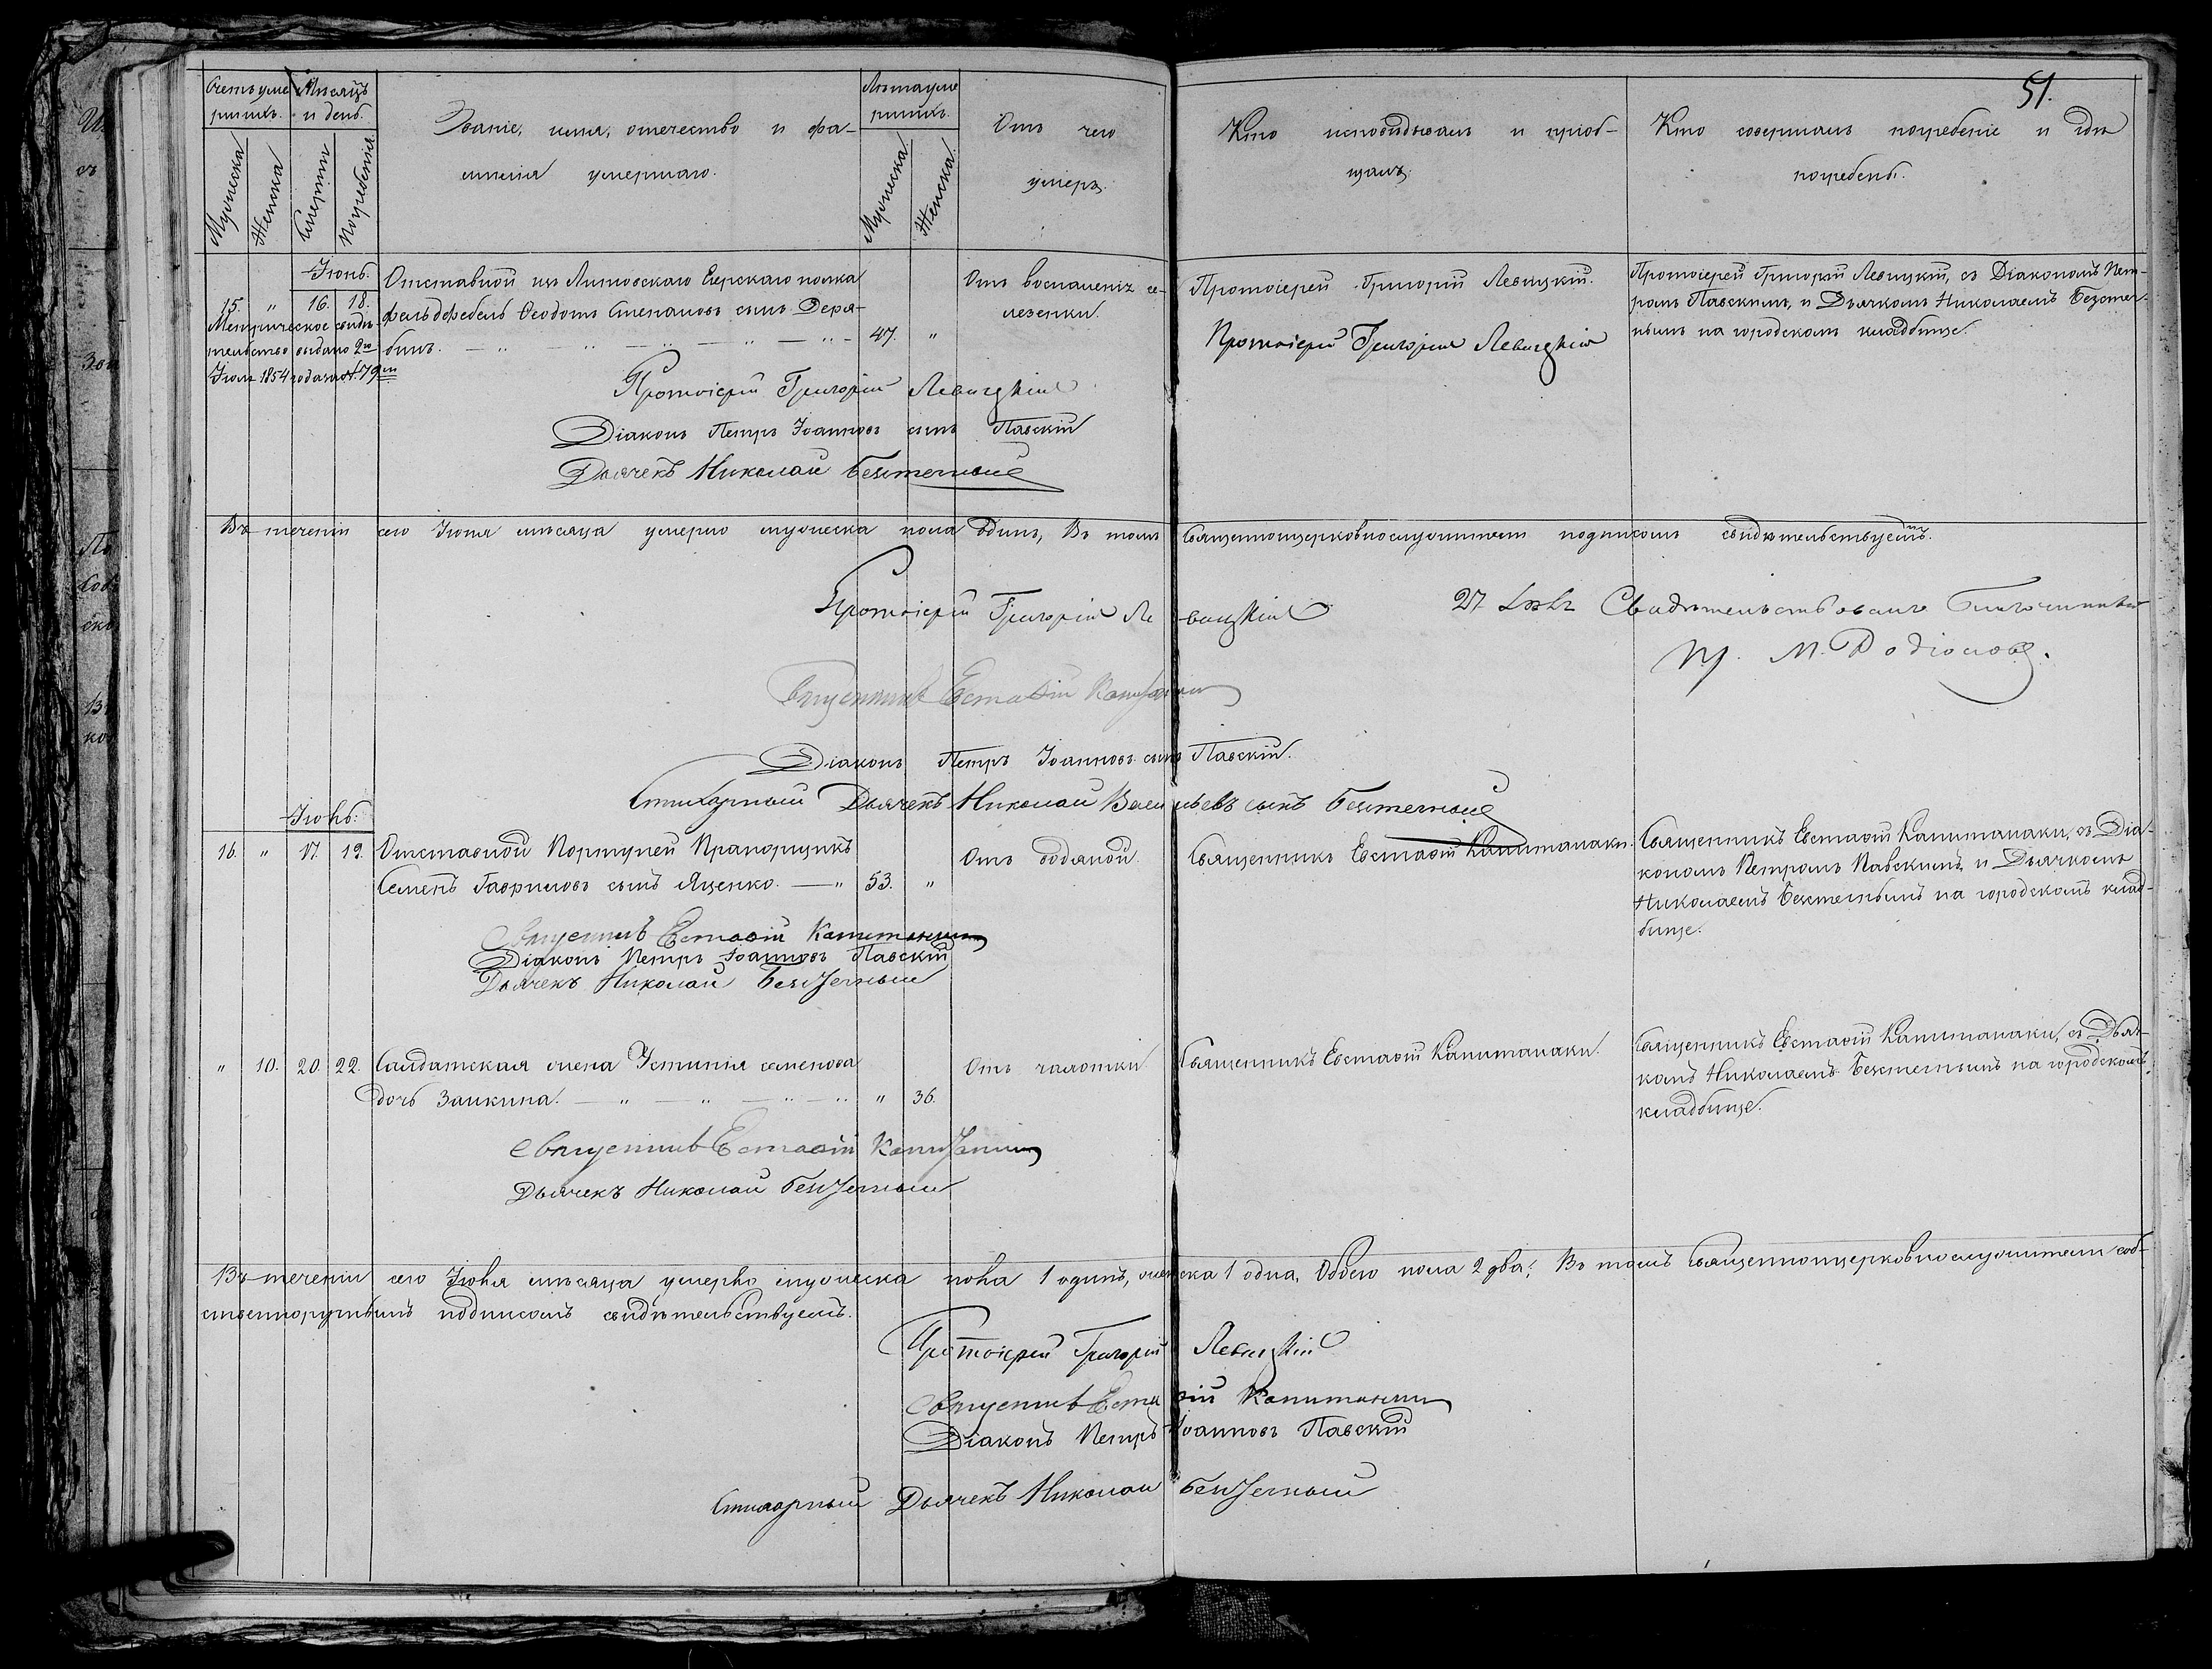 51.
Счетъ уме-
ршихъ.
Мѣсяцъ
и день.
Мужеска
Женска
Смерти
Погребенія
Званіе, имя, отечество и фа-
милія умершаго.
Лѣта уме
ршихъ.
Мужеска
Женска
Отъ чего
умеръ.
Кто исповѣдывалъ и пріоб-
щалъ.
Кто совершалъ погребеніе и гдѣ
погребены.
Іюнь.
15. " 16. 18.
Метрическое свидѣ-
тельство выдано 2го
Іюля 1854 года за № 79м
Отставной изъ Литовскаго Егерскаго полка
фельдфебель Ѳеодотъ Степановъ сынъ Деря-
бинъ. — " — " — " — " — 47. "
Отъ воспаленія се-
лезенки.
Протоіерей Григорій Левицкій.
Протоіерей Григорій Левицкій
Протоіерей Григорій Левицкій, съ Діакономъ Пет-
ромъ Павскимъ, и Дьячкомъ Николаемъ Безтег-
нымъ на городскомъ кладбище.
Протоіерей Григорій Левицкій
Діаконъ Петръ Іоанновъ сынъ Павскій
Дьячекъ Николай
Въ теченіи сего Іюня мѣсяца умерло мужеска пола одинъ, Въ томъ Священноцерковнослужители подписомъ свидѣтельствуемъ.
Протоіерей Григорій Левицкій
27 Свидѣтельствовалъ Благочинный
М. Родіоновъ.
Священникъ Евстафій Капитанаки
Діаконъ Петръ Іоанновъ сынъ Павскій.
Стихарный Дьячекъ Николай Васильевъ сынъ
Іюль.
16. " 17. 19. Отставной Портупей Прапорщикъ
Семенъ Гавриловъ сынъ Яценко. — " 53. "
Отъ водяной
Священникъ Евстафій Капитанаки.
Священникъ Евстафій Капитанаки, съ Діа-
кономъ Петромъ Павскимъ, и Дьячкомъ
Николаемъ на городскомъ клад-
бище.
Священникъ Евстафій Капитанаки
Діаконъ Петръ Іоанновъ Павскій
Дьячекъ Николай
" 10. 20. 22. Салдатская жена Устинія Семенова
дочь Заикина. — " — " — " — " " 36.
Отъ чахотки
Священникъ Евстафій Капитанаки.
Священникъ Евстафій Капитанаки, съ Дьяч-
комъ Николаемъ на городскомъ
кладбище.
Священникъ Евстафій Капитанаки
Дьячекъ Николай
Въ теченіи сего Іюля мѣсяца умерло мужеска пола 1 одинъ, женска 1 одна, Обоего пола 2 два; Въ томъ Священноцерковнослужители соб-
ственноручнымъ подписомъ свидѣтельствуемъ.
Протоіерей Григорій Левицкій
Священникъ Евстафій Капитанаки
Діаконъ Петръ Іоанновъ Павскій
Стихарный Дьячекъ Николай